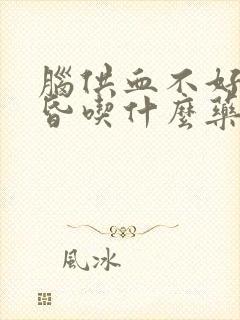 腦供血不好
昏喫什麼藥
風冰